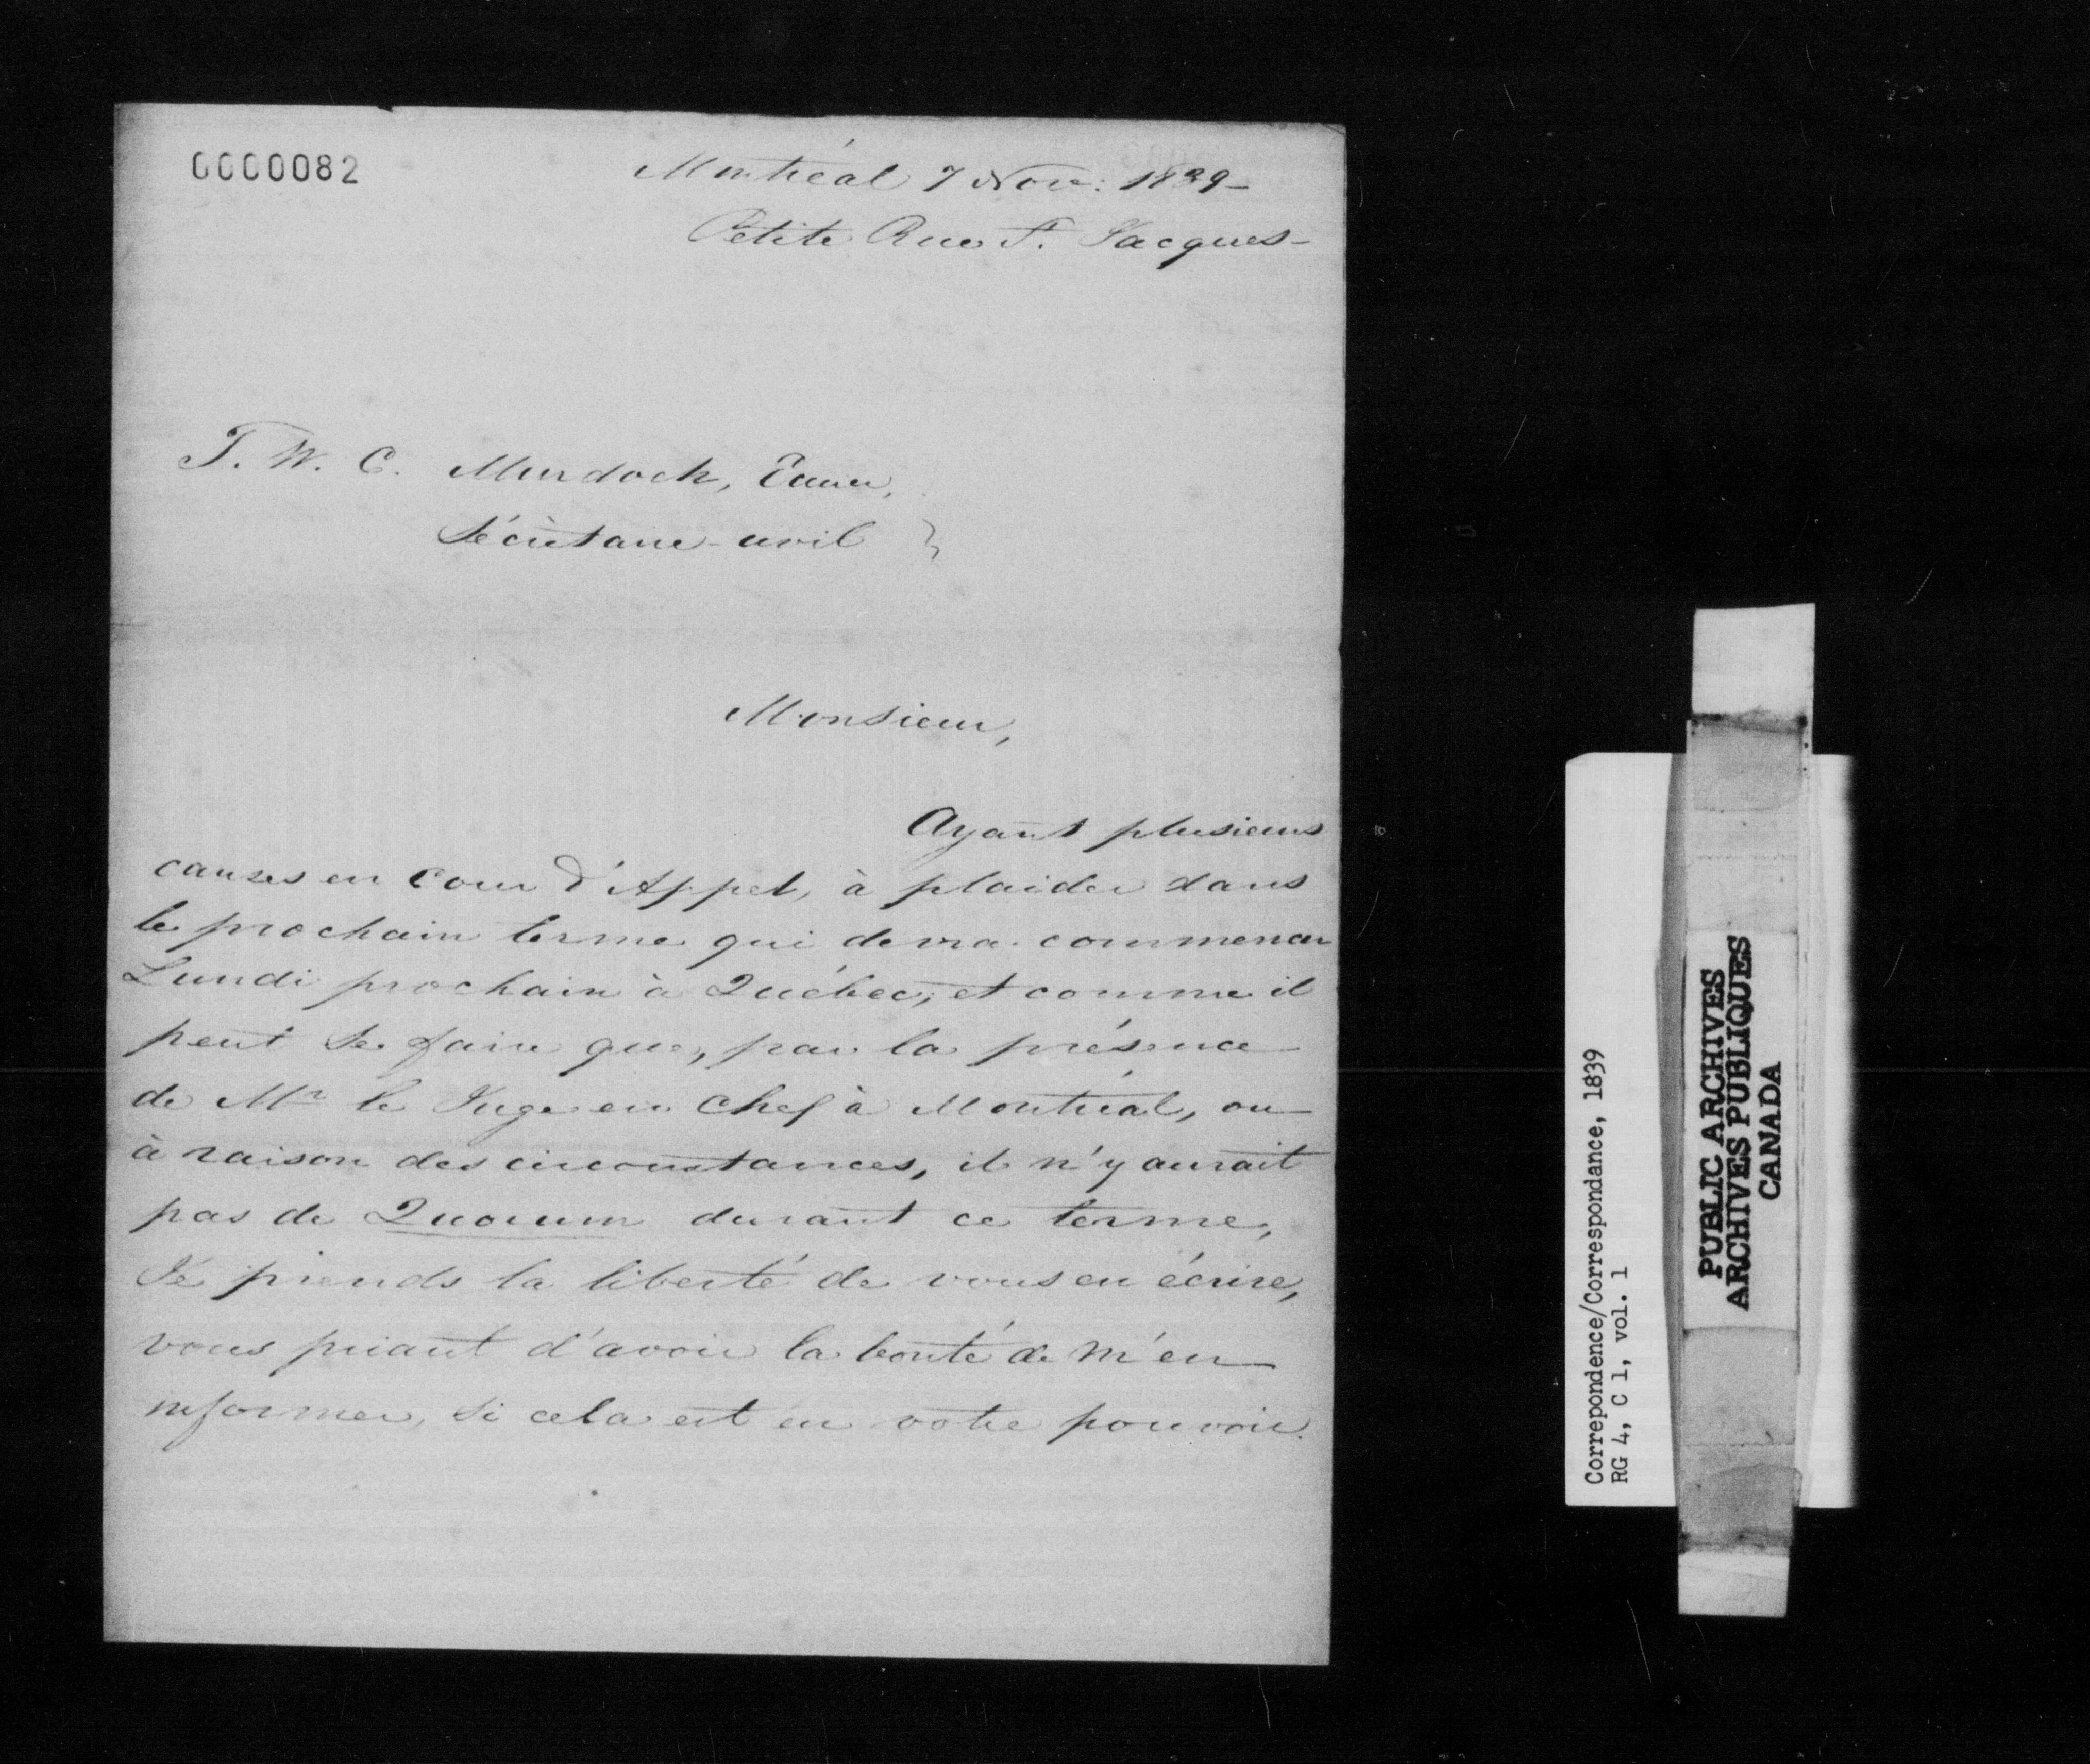 0000082
Montréal 7 Nov: 1839-
Petite Rue St. Jacques-
T. W. C. Murdoch, Ecuier,
Sécrétaire-civil }
Monsieur,
Ayant plusieurs
causes en Cour d'Appel, à plaider dans
le prochain terme qui devra commencer
Lundi prochain à Québec; et comme il
peut se faire que, par la présence
de Mr le Juge en Chef à Montréal, ou
à raison des circonstances, il n'y aurait
pas de Quorum durant ce terme,
Je prends la liberté de vous en écrire,
vous priant d'avoir la bonté de m'en
informer, si cela est en votre pouvoir.
Correpondence/Correspondance, 1839
RG 4, C 1, vol. 1
PUBLIC ARCHIVES
ARCHIVES PUBLIQUES
CANADA